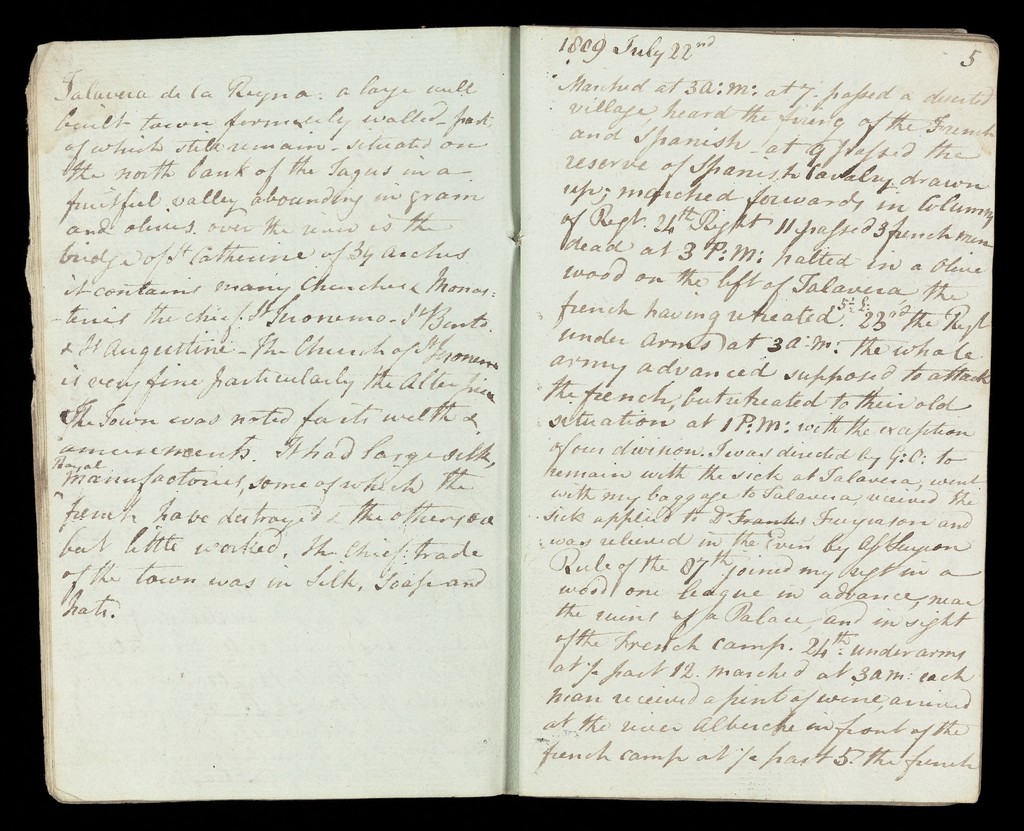 Talavera de la Reyna: a large well
built town formerly walled - part
of which still remain - situated on
the north bank of the Tagus in a
fruitful valley abounding in grain
and olives. over the river is the
bridge of St Catherine of 39 arches
it contains many Churches & Monas:
teries the chief St Jeronemo - St Bento
& St Augustine - The Church of St Jeronemo
is very fine particularly the Alter piece
The Town was noted for its welth &
amusements. It had large silk,
Royal
manufactories, some of which the
french have destroyed & the others are
but little worked. The chief: trade
of the town was in Silk, Soap and
hats.
1809 July 22nd
5
Marched at 3 a:m: at 7. passed a deserted
village, heard the firing of the French
and Spanish - at 9 passed the
reserve of Spanish Cavalry drawn
up; marched forwards in Columns
of Regt. 24th Right 11 passed 3 french men
dead at 3 P:M: halted in a Olive
wood on the left of Talavera, the
french having retreated. 23rd, the Regt
under arms at 3 a:m: the whole
army advanced supposed to attack
the french, but retreated to their old
situation at 1 P:M: with the exception
of our division. I was directed by G:O: to
remain with the sick at Talavera, went
with my baggage to Talavera, received the
sick applied to Dr Franks Furguson and
was relieved in the Even by As Surgeon
Rule of the 87th, joined my regt in a
wood one league in advance, near
the ruins of a Palace, and in sight
of the French camp. 24th. under arms
at ½ past 12. marched at 3 am: each
man received a pint of wine, arrived
at the river Alberche in front of the
french camp at ½ past 5. the french